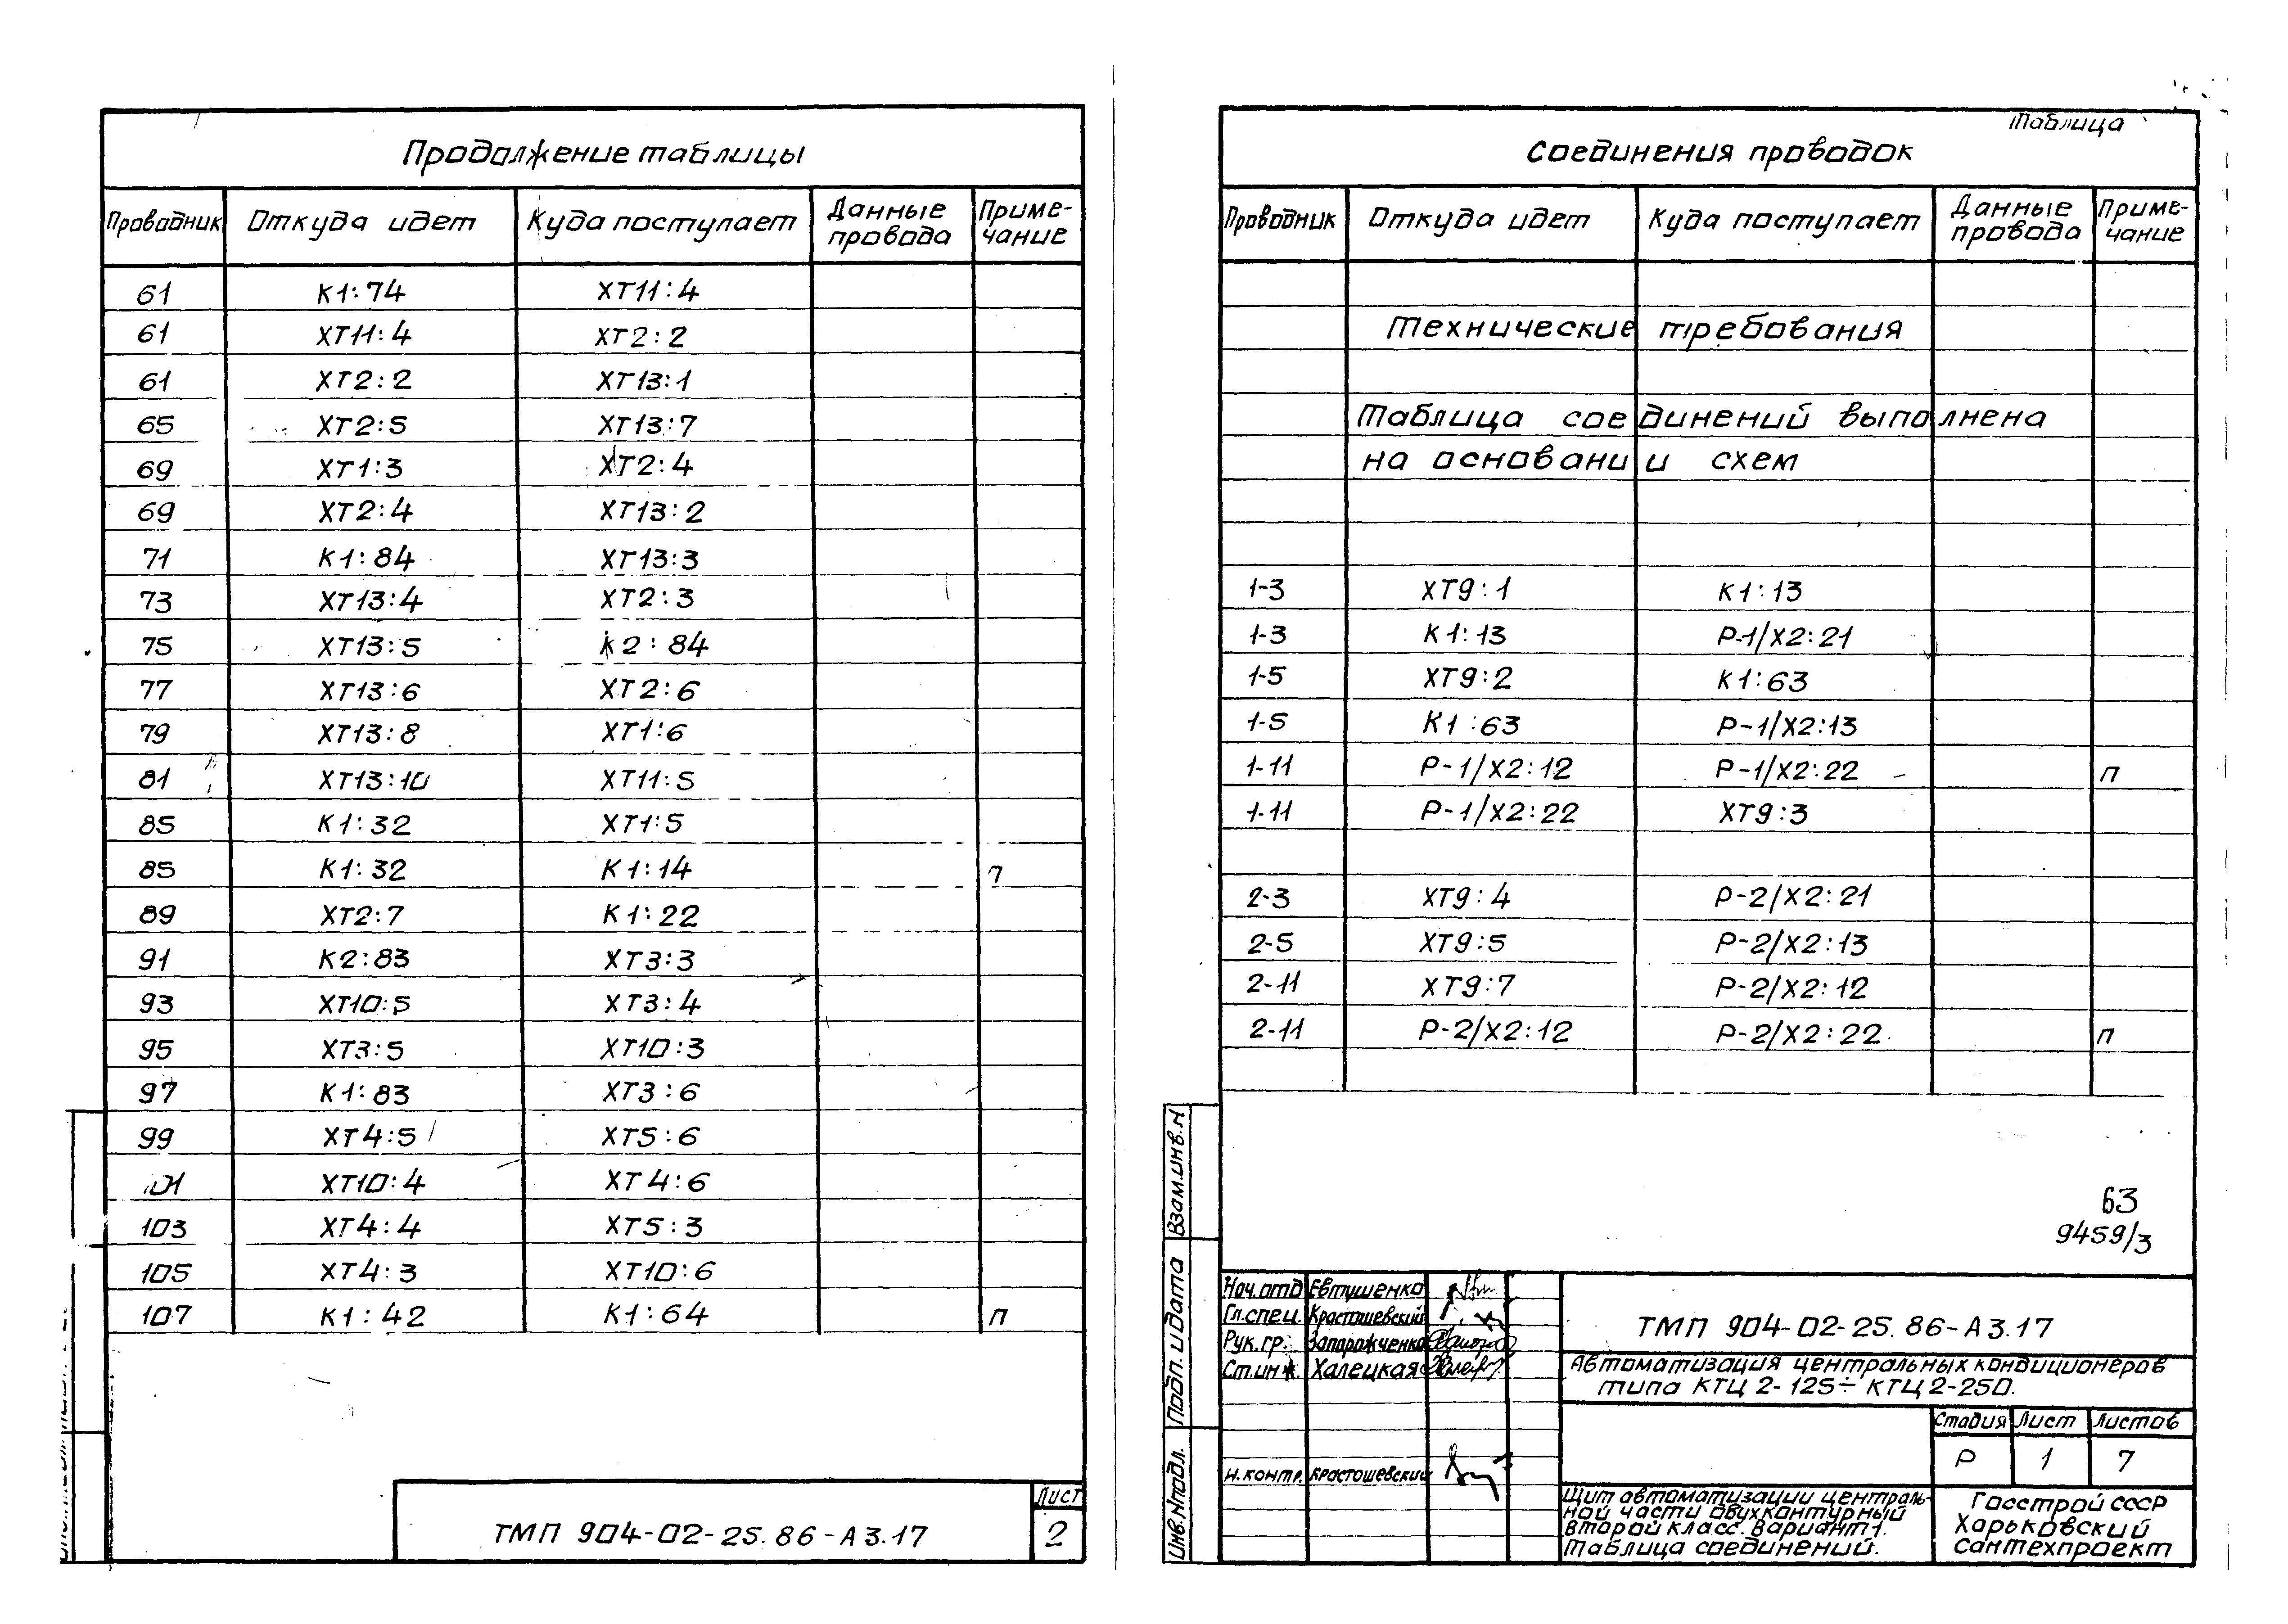 Продолжение таблицы
Проводник Откуда идет Куда поступает Данные провода Примечание
61 К1:74 ХТ11:4
61 ХТ11:4 ХТ2:2
61 ХТ2:2 ХТ13:1
65 ХТ2:5 ХТ13:7
69 ХТ1:3 ХТ2:4
69 ХТ2:4 ХТ13:2
71 К1:84 ХТ13:3
73 ХТ13:4 ХТ2:3
75 ХТ13:5 К2:84
77 ХТ13:6 ХТ2:6
79 ХТ13:8 ХТ1:6
81 ХТ13:10 ХТ11:5
85 К1:32 ХТ1:5
85 К1:32 К1:14 п
89 ХТ2:7 К1:22
91 К2:83 ХТ3:3
93 ХТ10:5 ХТ3:4
95 ХТ3:5 ХТ10:3
97 К1:83 ХТ3:6
99 ХТ4:5 ХТ5:6
101 ХТ10:4 ХТ4:6
103 ХТ4:4 ХТ5:3
105 ХТ4:3 ХТ10:6
107 К1:42 К1:64 п
ТМП 904-02-25.86-А3.17
Лист
2
Таблица
Соединения проводок
Проводник Откуда идет Куда поступает Данные провода Примечание
Технические требования
Таблица соединений выполнена
на основании схем
1-3 ХТ9:1 К1:13
1-3 К1:13 Р-1/Х2:21
1-5 ХТ9:2 К1:63
1-5 К1:63 Р-1/Х2:13
1-11 Р-1/Х2:12 Р-1/Х2:22 п
1-11 Р-1/Х2:22 ХТ9:3
2-3 ХТ9:4 Р-2/Х2:21
2-5 ХТ9:5 Р-2/Х2:13
2-11 ХТ9:7 Р-2/Х2:12
2-11 Р-2/Х2:12 Р-2/Х2:22 п
63
9459/3
Взам.инв.N
Подп. и дата
Инв.Nподл.
Нач.отд Евтушенко
Гл.спец. Красташевский
Рук.гр. Запорожченко
Ст.инж. Халецкая
Н.контр. Красташевский
ТМП 904-02-25.86-А3.17
Автоматизация центральных кондиционеров
типа КТЦ 2-125÷КТЦ 2-250.
Стадия Лист Листов
Р 1 7
Щит автоматизации централь-
ной части двухконтурный
второй класс. Вариант 1.
Таблица соединений.
Госстрой СССР
Харьковский
Сантехпроект